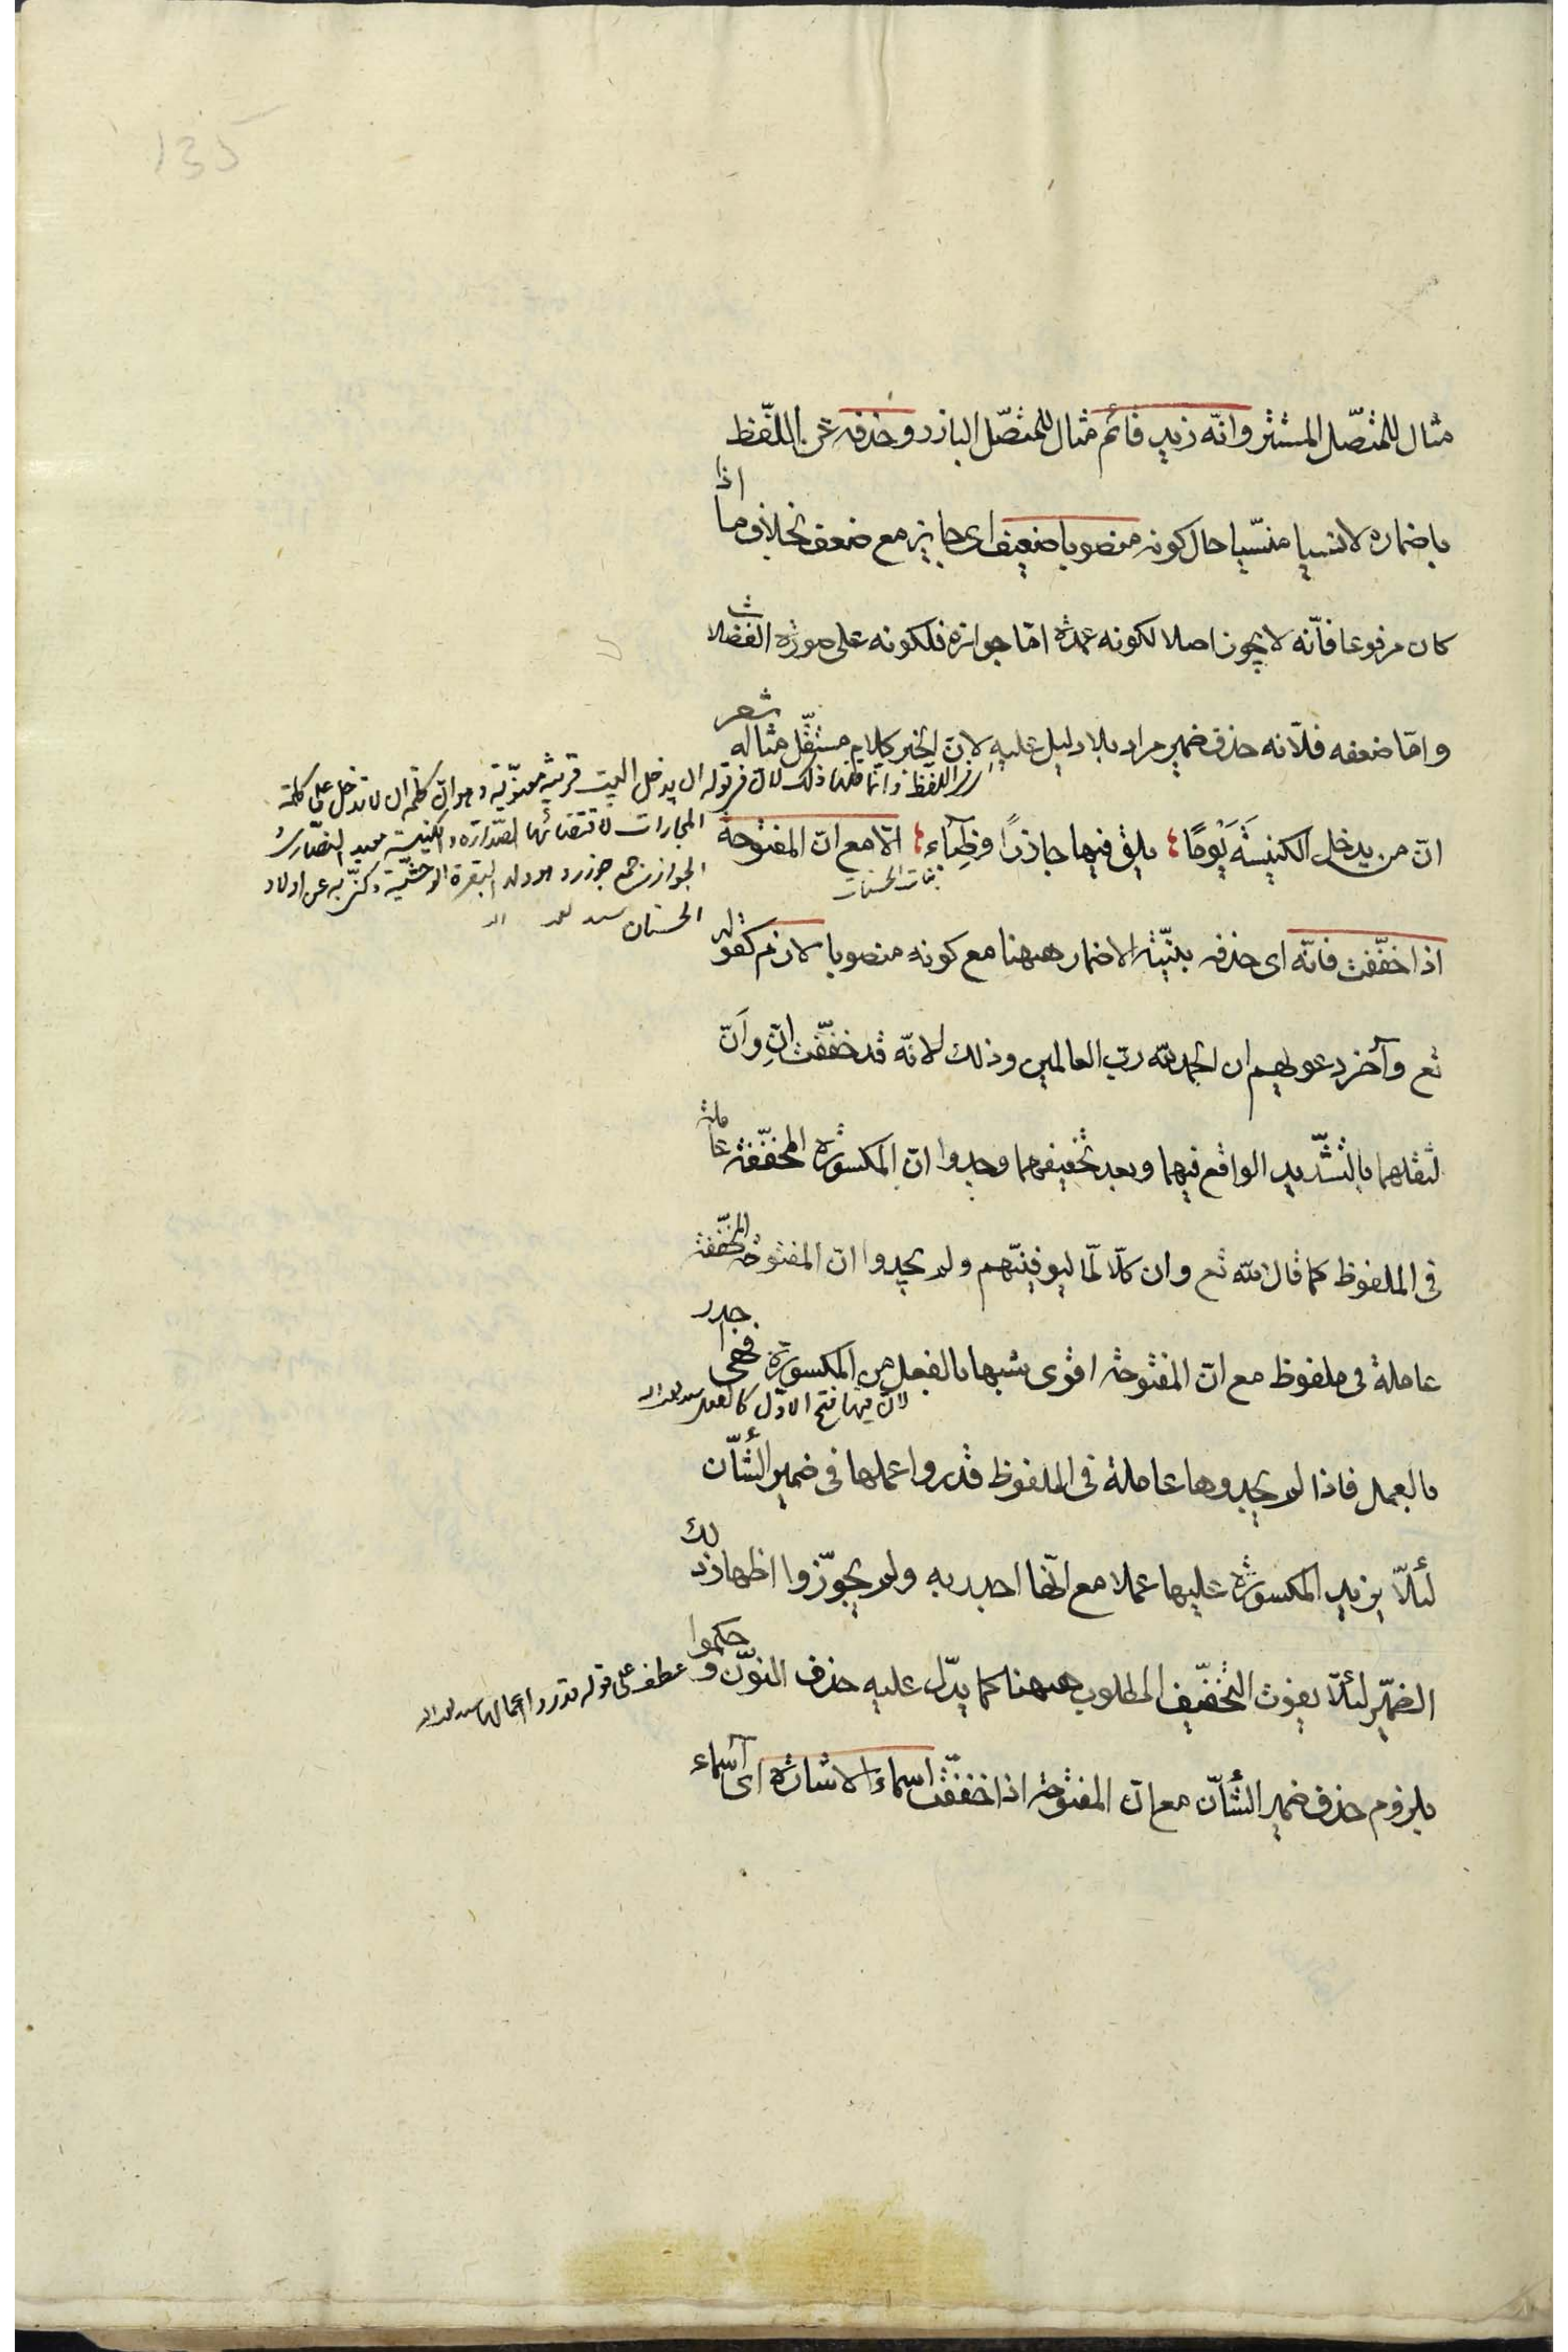 135
مثال للمتّصل المستتر وانّه زيد قائم مثال للمتّصل البارز وحذفه عن اللّفظ
باضماره لا نسيا منسّيا حال كونه منصوبا ضعيف اى جايز مع ضعف بخلاف ما اذا
كان مرفوعا فانّه لا يجوز اصلا لكونه عمدة امّا جوازه فلكونه على صورة الفضلات
وامّا ضعفه فلانّه حذف ضمير مراد بلا دليل عليه لانّ الخبر كلام مستقّل مثاله شعر
انّ من يدخل الكنيسَةَ يَوْمًا يلق فيها جاذرًا وظِبَآء الّا مع انّ المفتوحة
بنات الحسنات
اذا خفّفت فانّه اى حذفه بنيّة الاضمار ههنا مع كونه منصوبا لازم كقوله
تع وآخر دعويهم ان الحمد لله ربّ العالمين وذلك لانّه قد خفّفت انّ وأنّ
لثقلهما بالتّشديد الواقع فيهما وبعد تخفيفهما وجدوا انّ المكسورة المخفّفة عاملة
فى الملفوظ كما قال الله تع وان كلّا لمّا ليوفينّهم ولم يجدوا انّ المفتوحة المخفّفة
عاملة فى ملفوظ مع انّ المفتوحة اقوى شبها بالفعل من المكسورة فهى اجدر
لانّ فيها فتح الاوّل كالفعل
بالعمل فاذا لم يجدوها عاملة فى الملفوظ قدروا عملها فى ضمير الشّأن
لئلّا يزيد المكسورة عليها عملا مع انّها اجدر به ولم يجوّزوا اظهار ذلك
الضمّير لئلّا يفوت التّخفيف المطلوب ههنا كما يدّل عليه حذف النوّن و حكموا
بلزوم حذف ضمير الشّأن مع انّ المفتوحة اذا خففّت اسماء الاشارة اى اسماء
اللفظ وانّما قلنا ذلك لانّ فى قوله ان يدخل البيت قرينة معنويّة وهو انّ كلمة ان لا تدخل على كلمة
المجازات لاقتضائها الصّدارة والكنيسة معبد النصّارى و
الجواذر جمع جوذر وهو ولد البقرة الوحشيّة وكنّى به عن اولاد
الحسنان
عطف على قوله قدروا اعمالها